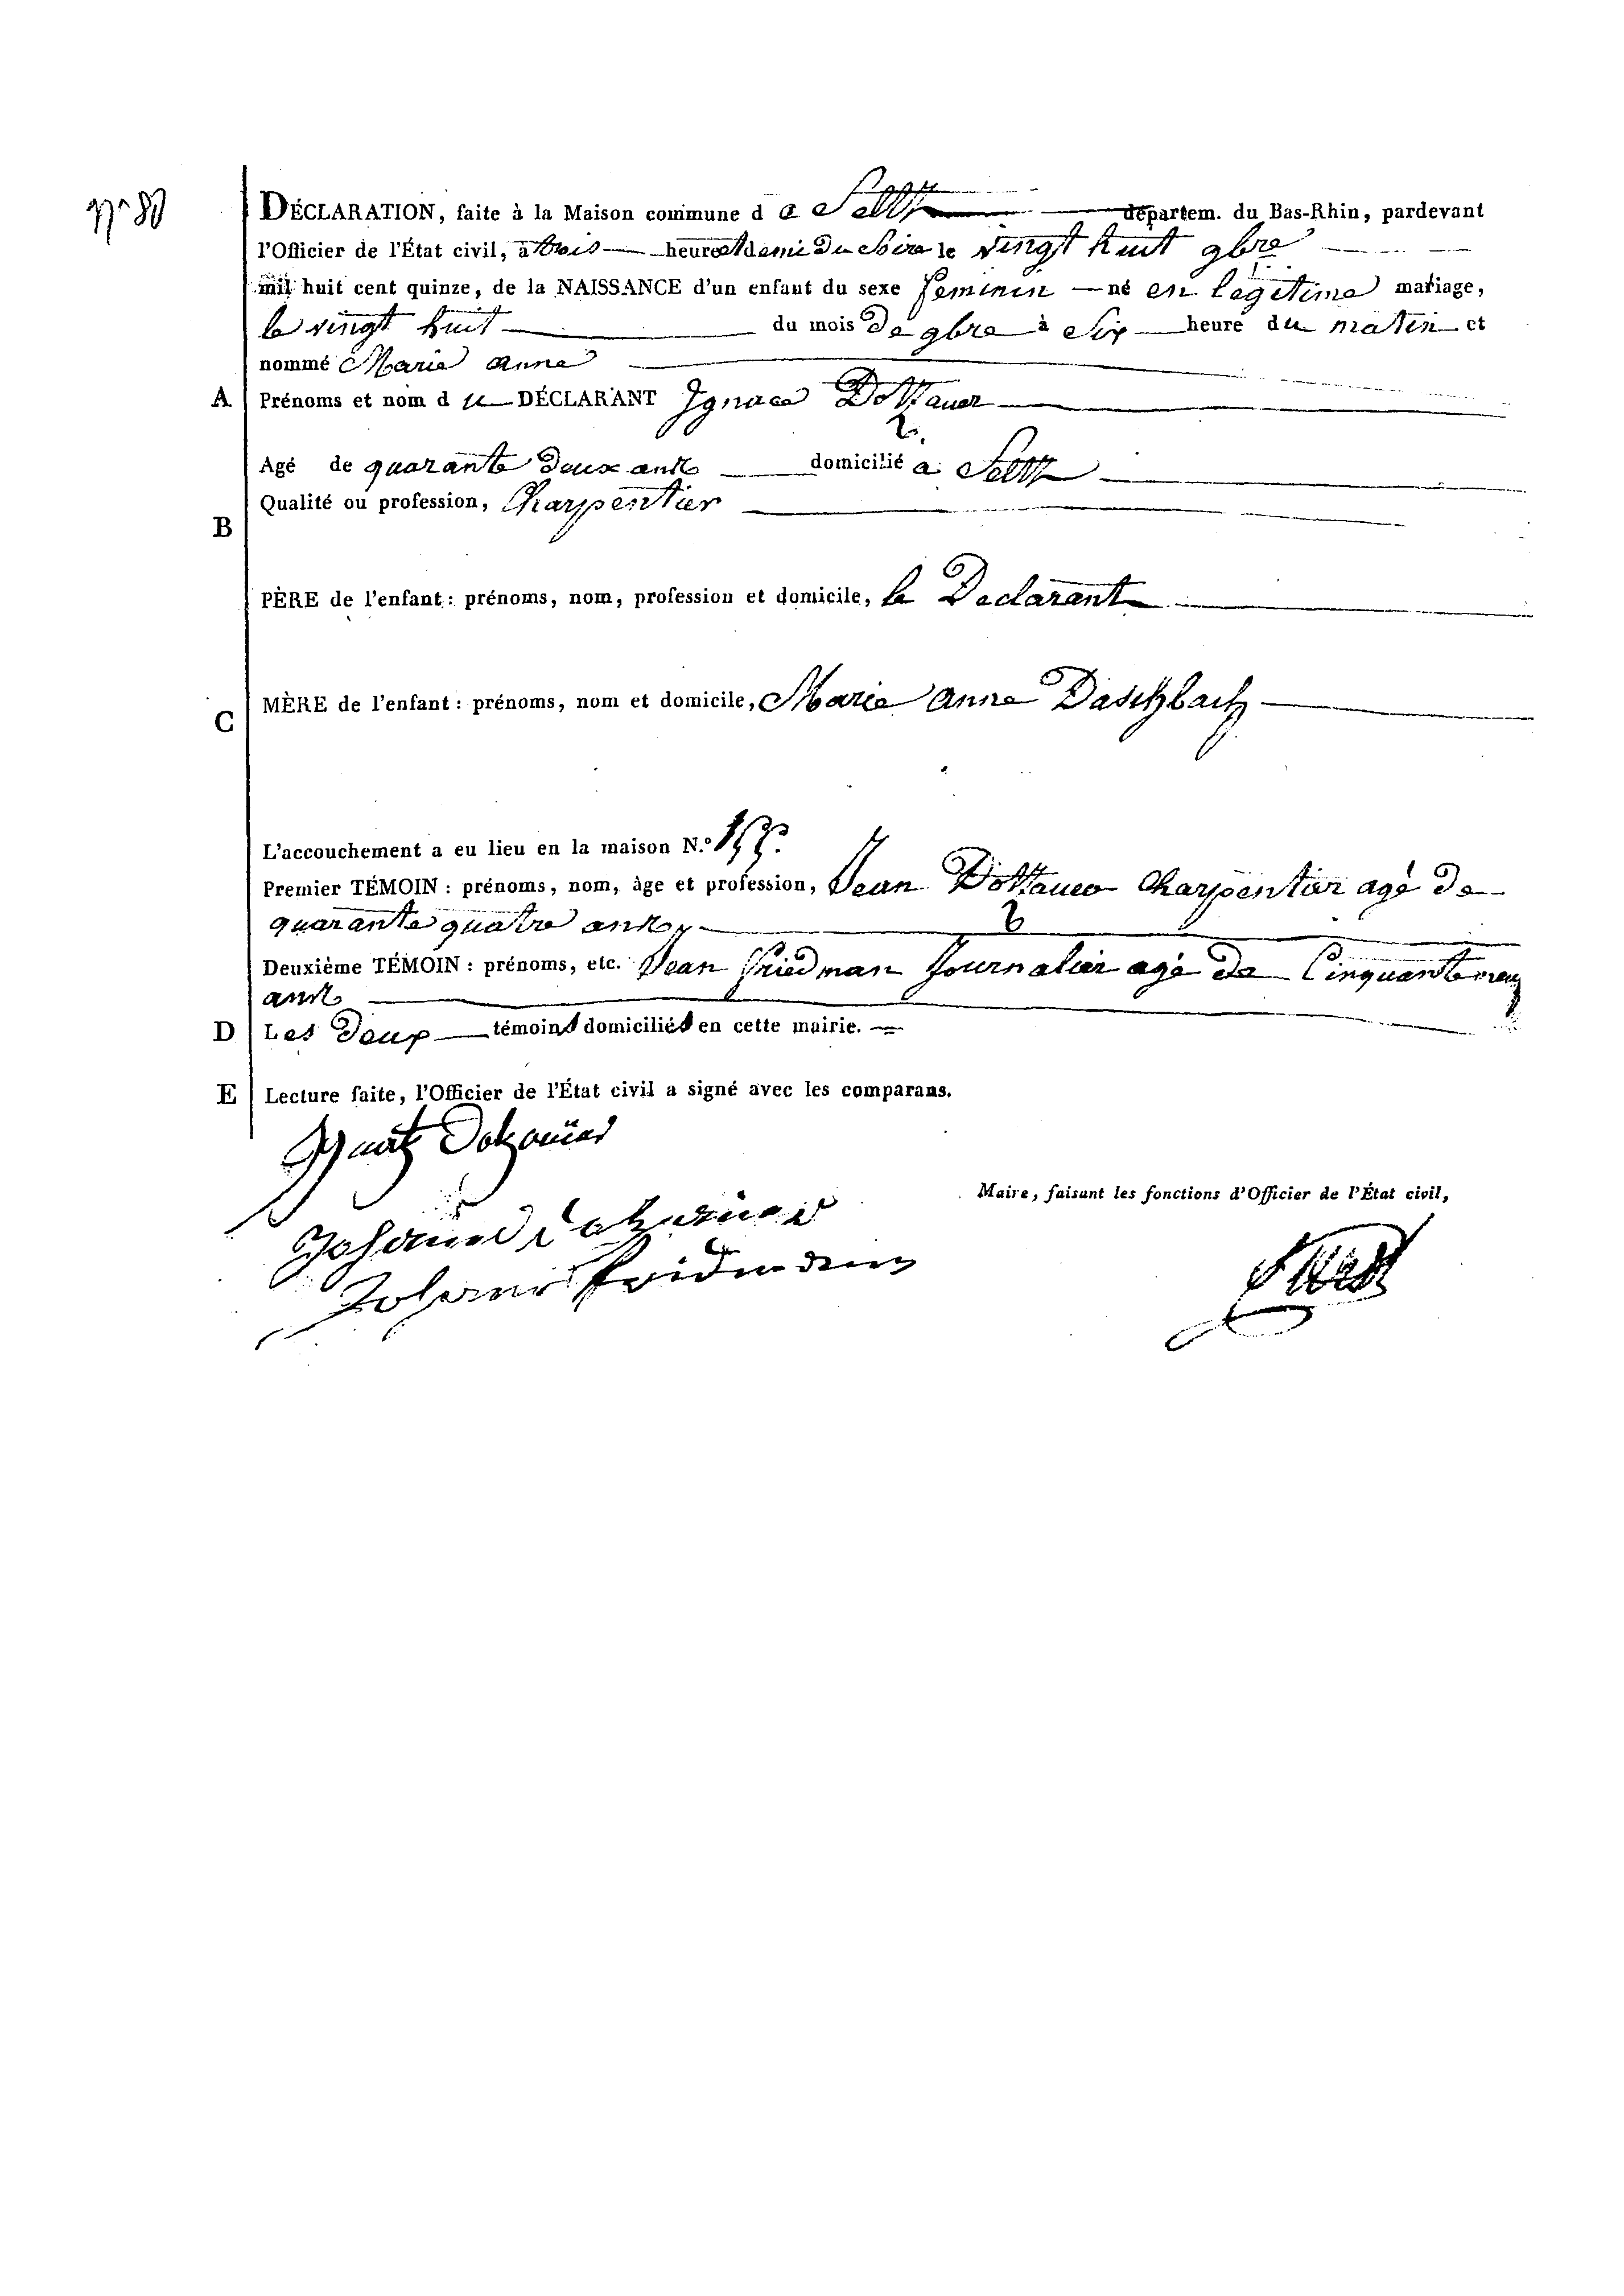 N° 80
DÉCLARATION, faite à la Maison commune d a Seltz départem. du Bas-Rhin, pardevant
l'Officier de l'État civil, à trois heures et demi du Soire le vingt huit 9bre
mil huit cent quinze, de la NAISSANCE d'un enfant du sexe feminin né en legitime mariage,
le vingt huit du mois de 9bre à Six heure du matin et
nommé Marie anne
A Prénoms et nom d u DÉCLARANT Ignace Dottauer
z
Agé de quarante deux ans domicilié a Seltz
Qualité ou profession, Charpentier
B
PÈRE de l'enfant : prénoms, nom, profession et domicile, le Declarant
MÈRE de l'enfant : prénoms, nom et domicile, Marie anne Daschbach
C
L'accouchement a eu lieu en la maison N.°
Premier TÉMOIN : prénoms, nom, âge et profession, Jean Dottauer Charpentier agé de
z
quarante quatre ans
Deuxième TÉMOIN : prénoms, etc. Jean Friedman Journalier agé de Cinquante
ans
D Les deux témoins domiciliés en cette mairie.
E Lecture faite, l'Officier de l'État civil a signé avec les comparans.
Ignatz Dotzauer
Maire, faisant les fonctions d'Officier de l'État civil,
Johannes Dotzauer
Johannes Fridmann